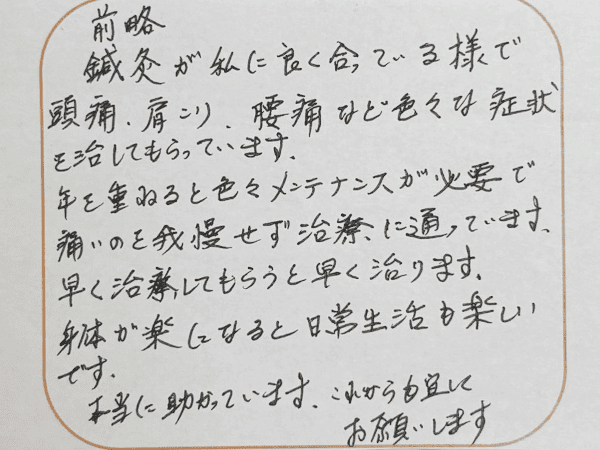 前略
鍼灸が私に良く合っている様で
頭痛、肩こり、腰痛など色々な症状
を治してもらっています。
年を重ねると色々メンテナンスが必要で
痛いのを我慢せず治療に通っています。
早く治療してもらうと早く治ります。
身体が楽になると日常生活も楽しい
です。
本当に助かっています。これからも宜しく
お願いします